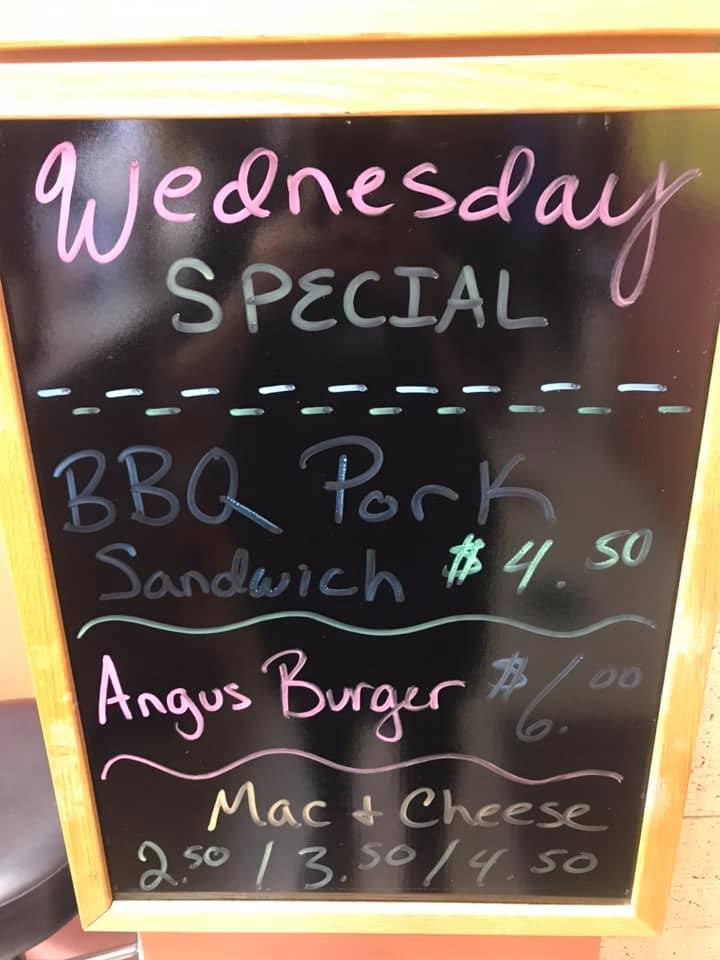 Wednesday
SPECIAL
BBQ Pork
Sandwich $4.50
Angus Burger $6.00
Mac & Cheese
2.50/3.50/4.50